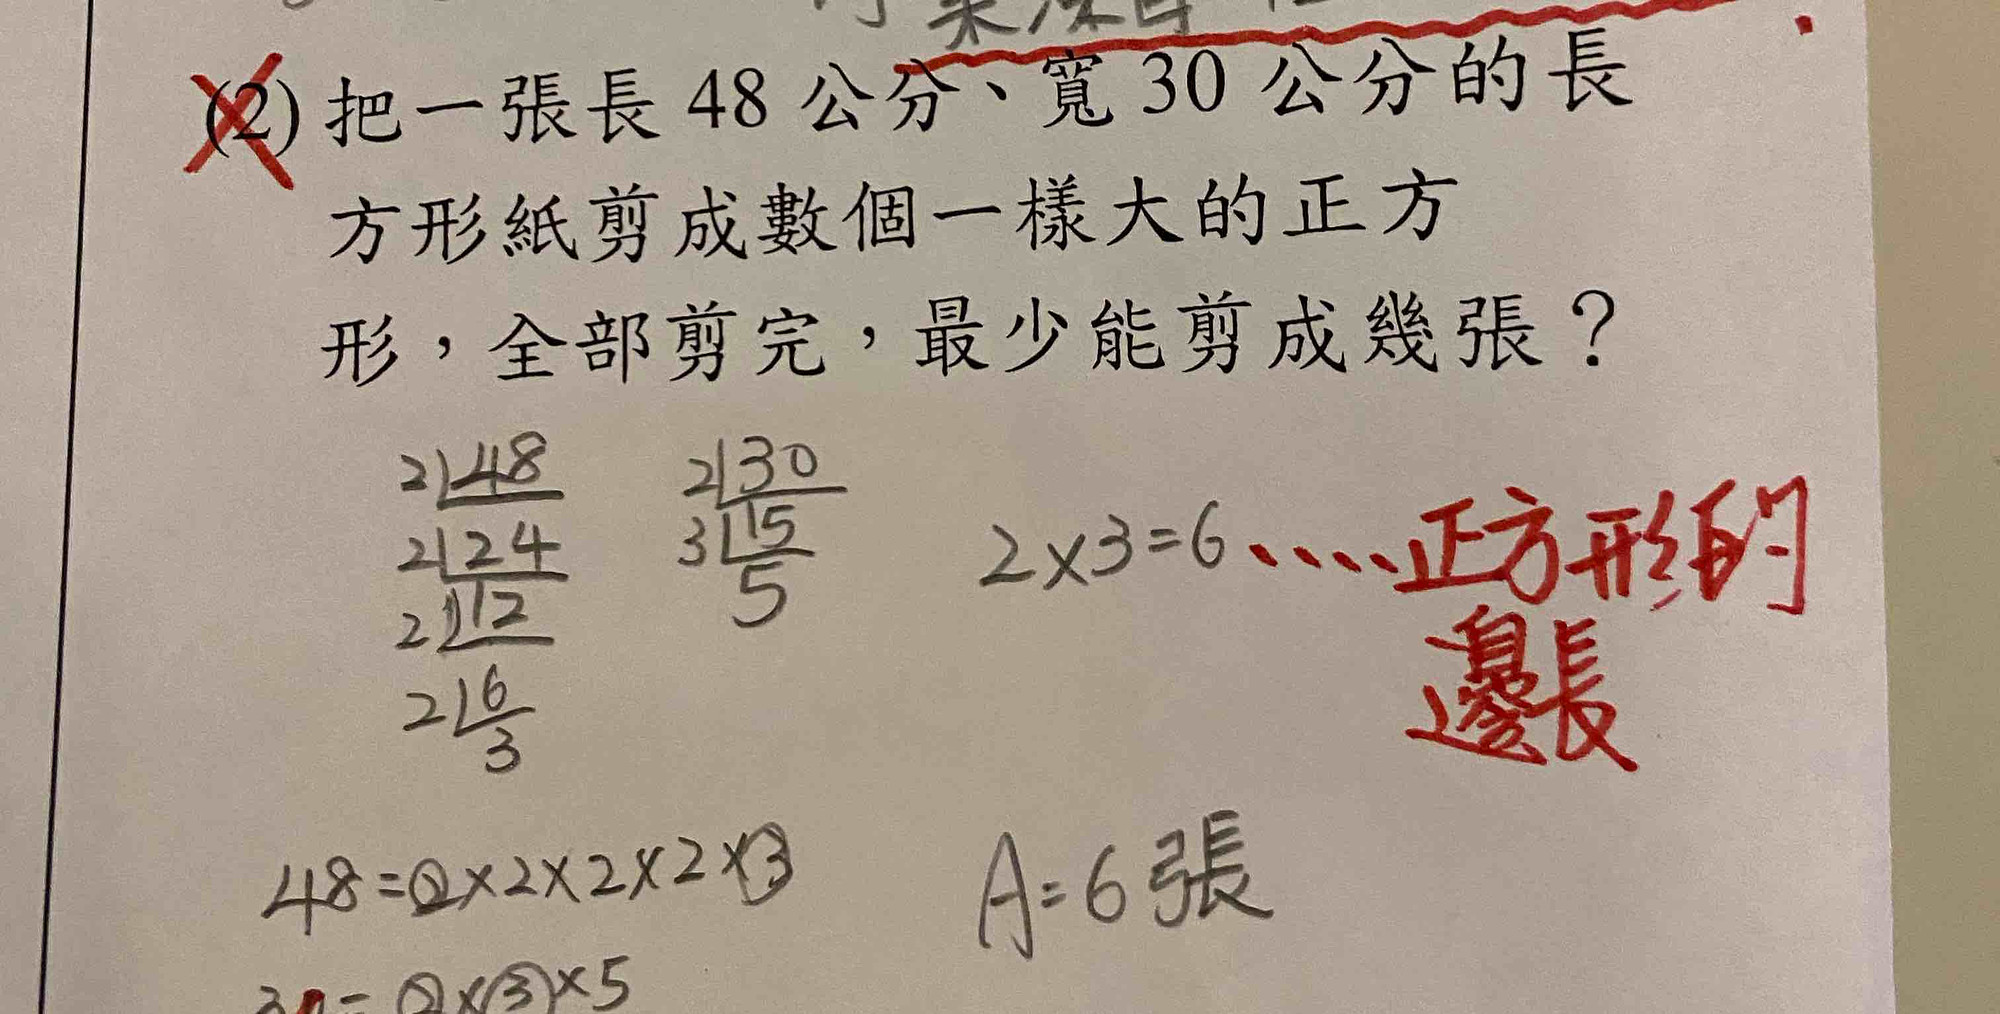 (2) 把一張長 48 公分、寬 30 公分的長
方形紙剪成數個一樣大的正方
形，全部剪完，最少能剪成幾張？
2 48
2 24
2 12
2 6
3
2 30
3 15
5
2×3=6 ‥‥正方形的
邊長
48=2×2×2×2×3
A=6張
30=2×3×5